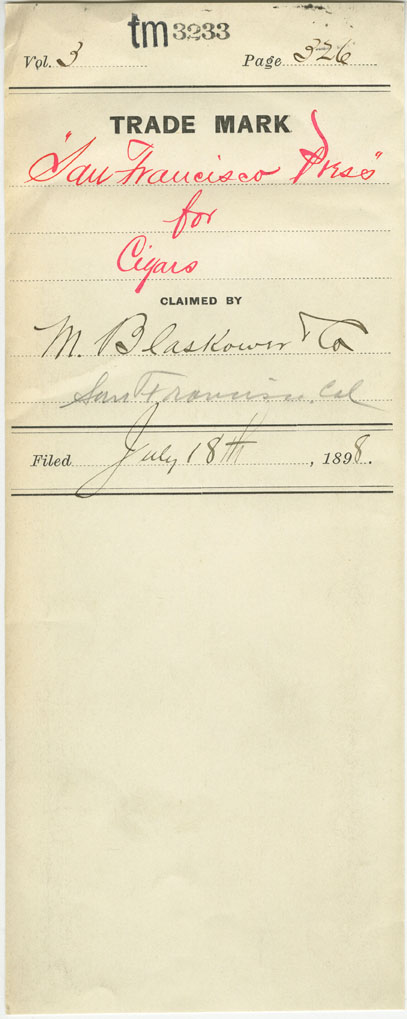 tm 3233
Vol. 3 Page 326
TRADE MARK
"San Francisco Press"
for
Cigars
CLAIMED BY
M. Blaskower & Co
San Francisco, Cal
Filed July 18th, 1898.